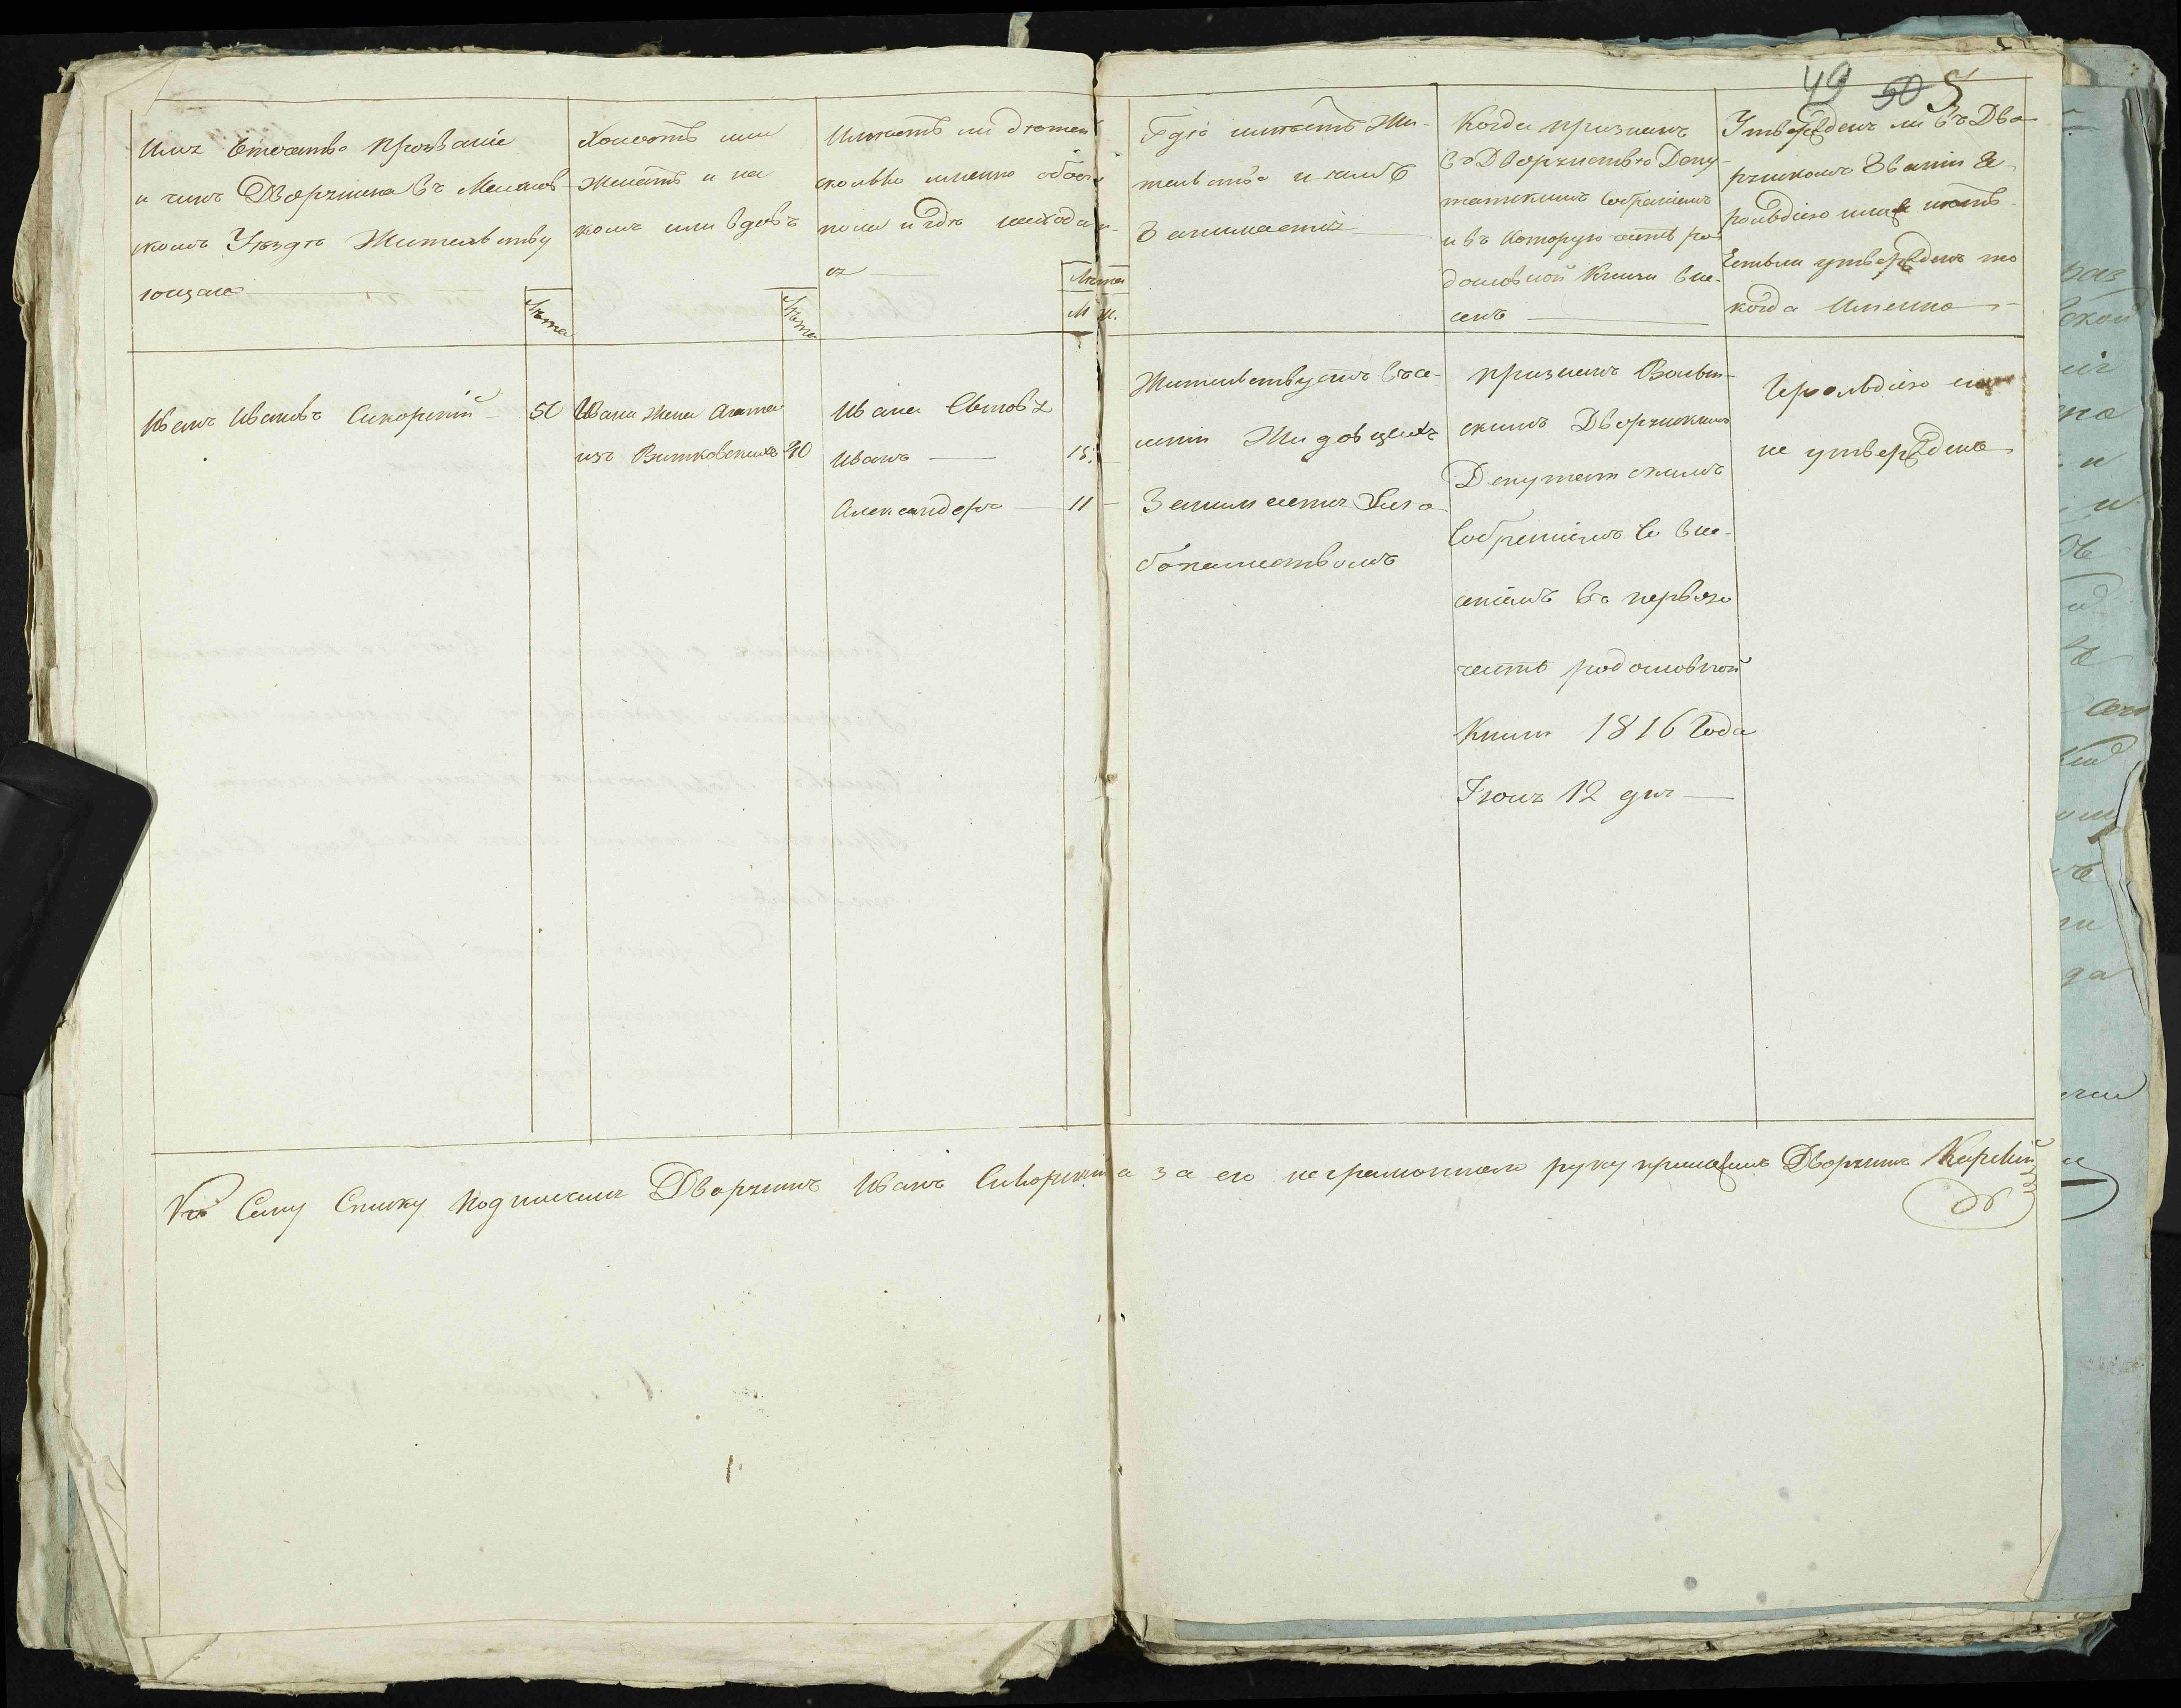 49 50 5
Имя Отчество Прозваніе
и чинъ Дворянина въ
скомъ Уездѣ Жительству
ющаго
Лѣта
Холостъ или
женатъ и на
комъ или вдовъ
Лѣта
Имѣетъ ли дѣтей
сколько именно обоего
пола и гдѣ находят-
ся
Лѣта
М Ж.
Гдѣ имѣетъ Жи-
тельство и чемъ
Занимается
Когда признанъ
въ Дворянствѣ Депу-
татскимъ Собраніемъ
и въ которую часть ро
дословной Книги вне-
сенъ
Утвержденъ ли въ Дво
рянскомъ Званіи Ге-
рольдіею или нѣтъ
Естьли утвержденъ то
когда Именно
Иванъ Ивановъ Сикорскій 50
Ивана жена Агата
изъ Витковскихъ 40
Ивана Сыновья
Иванъ 15.
Александеръ 11
Жительствуетъ въ се-
леніи Жидовцахъ
Занимается Хлѣ
бопашествомъ
признанъ Волын-
скимъ Дворянскимъ
Депутатскимъ
Собраніемъ со вне-
сеніемъ въ первую
часть родословной
Книги 1816 Года
Іюня 12 дня
Герольдіею еще
не утвержденъ
Къ Сему Списку подписался Дворянинъ Иванъ Сикорскій а за его неграмотнаго руку приложилъ Дворянинъ Карскій